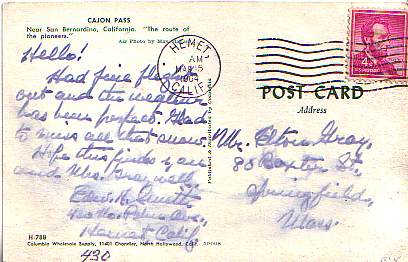 CAJON PASS
Near San Bernardino, California. "The route of
the pioneers."
Air Photo by
HEMET
AM
CALIF.
Hello!
Had fine flight
out and the weather
has been perfect. Glad
to miss all that snow.
Hope this finds you
and Mrs. Gray well.
Ave.,
Hemet Calif
430
POST CARD
Address
Mr. Elton Gray,
80 Baxter St.,
Springfield,
Mass.
4¢
H-788
Columbia Wholesale Supply, 11401 Chandler, North Hollywood, Calif.